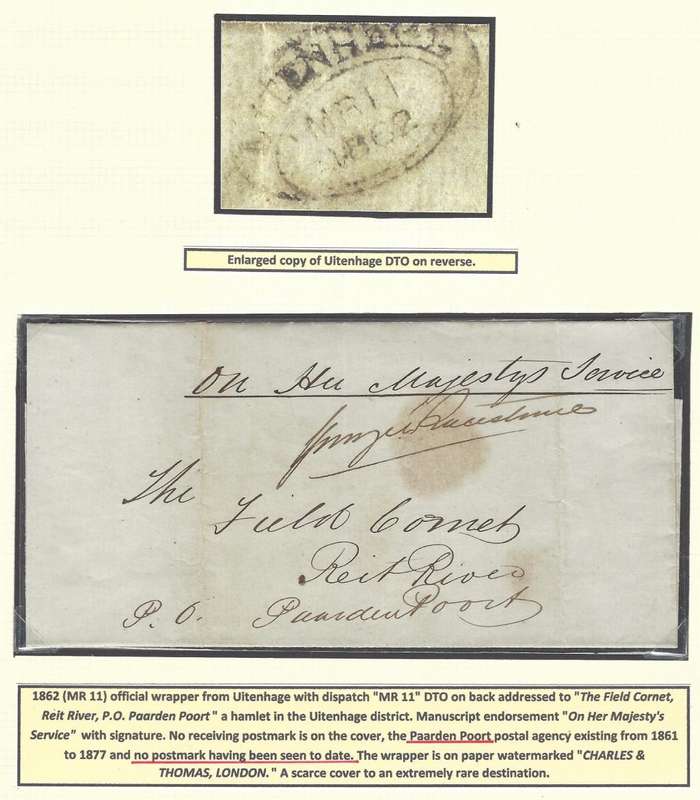 UITENHAGE
MR 11
1862
Enlarged copy of Uitenhage DTO on reverse.
On Her Majestys Service
The
Field Cornet
Reit River
P. O. Paarden Poort
1862 (MR 11) official wrapper from Uitenhage with dispatch "MR 11" DTO on back addressed to "The Field Cornet,
Reit River, P.O. Paarden Poort" a hamlet in the Uitenhage district. Manuscript endorsement "On Her Majesty's
Service" with signature. No receiving postmark is on the cover, the Paarden Poort postal agency existing from 1861
to 1877 and no postmark having been seen to date. The wrapper is on paper watermarked "CHARLES &
THOMAS, LONDON." A scarce cover to an extremely rare destination.